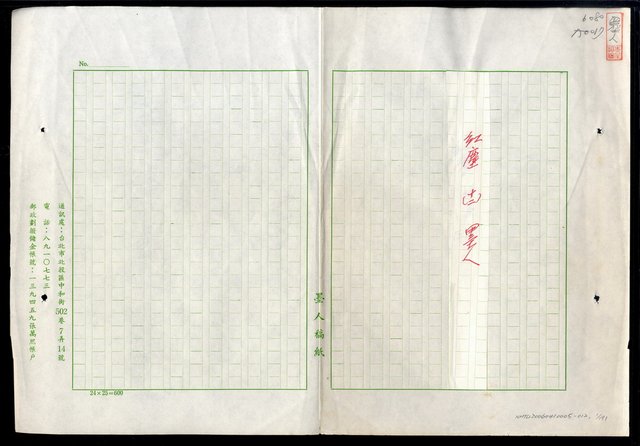 6080
墨人
No.
紅塵 墨人
墨人稿紙
24×25=600
通訊處：台北市北投區中和街502巷7弄14號
電話：八九一〇七七三
郵政劃撥儲金帳號：一三九四五九張萬熙帳戶